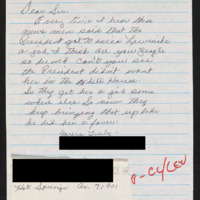 Dear Sir:
Every time I hear the
news men said that the
President got to
a job. I think are you people
so dumb. Can't you see
the President didn't want
her in the White House
So they get her a job some
where else. So now they
keep bringing that up like
he did her a favor.
Yours Truly
Hot Springs Ar. 71901